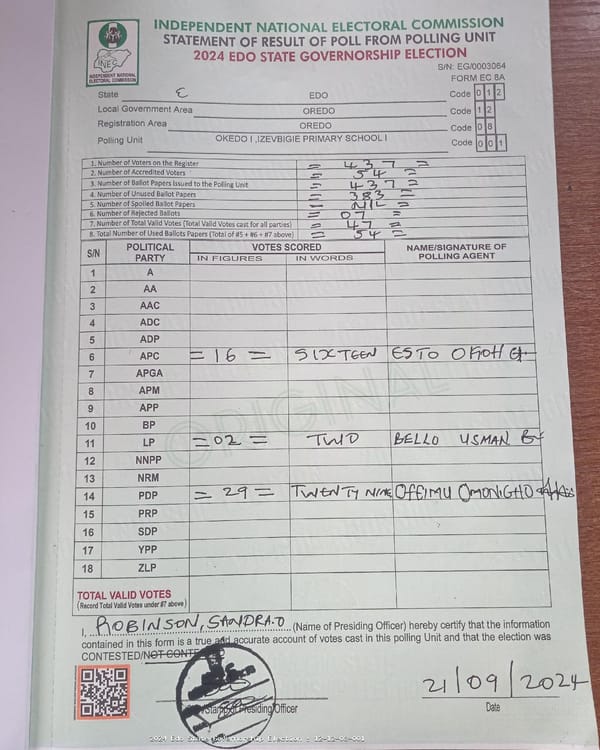 INDEPENDENT NATIONAL ELECTORAL COMMISSION
STATEMENT OF RESULT OF POLL FROM POLLING UNIT
2024 EDO STATE GOVERNORSHIP ELECTION
INEC
INDEPENDENT NATIONAL
ELECTORAL COMMISSION
S/N: EG/0003064
FORM EC 8A
State EDO Code 0 1 2
Local Government Area OREDO Code 1 2
Registration Area OREDO Code 0 8
Polling Unit OKEDO I ,IZEVBIGIE PRIMARY SCHOOL I Code 0 0 1
1. Number of Voters on the Register = 437 =
2. Number of Accredited Voters = 54 =
3. Number of Ballot Papers Issued to the Polling Unit = 437 =
4. Number of Unused Ballot Papers = 383 =
5. Number of Spoiled Ballot Papers = NIL =
6. Number of Rejected Ballots = 07 =
7. Number of Total Valid Votes (Total Valid Votes cast for all parties) = 47 =
8. Total Number of Used Ballots Papers (Total of #5 + #6 + #7 above) = 54 =
S/N POLITICAL PARTY VOTES SCORED NAME/SIGNATURE OF POLLING AGENT
IN FIGURES IN WORDS
1 A
2 AA
3 AAC
4 ADC
5 ADP
6 APC = 16 = SIXTEEN ESTO
7 APGA
8 APM
9 APP
10 BP
11 LP = 02 = TWO BELLO USMAN
12 NNPP
13 NRM
14 PDP = 29 = TWENTY NINE OFFIMU OMONIGHO
15 PRP
16 SDP
17 YPP
18 ZLP
ORIGINAL
TOTAL VALID VOTES
(Record Total Valid Votes under #7 above)
I, ROBINSON, SANDRA.O (Name of Presiding Officer) hereby certify that the information
contained in this form is a true and accurate account of votes cast in this polling Unit and that the election was
CONTESTED/NOT CONTE
21/09/2024
Presiding Officer Date
2024 Edo State Governorship Election : 12-12-08-001